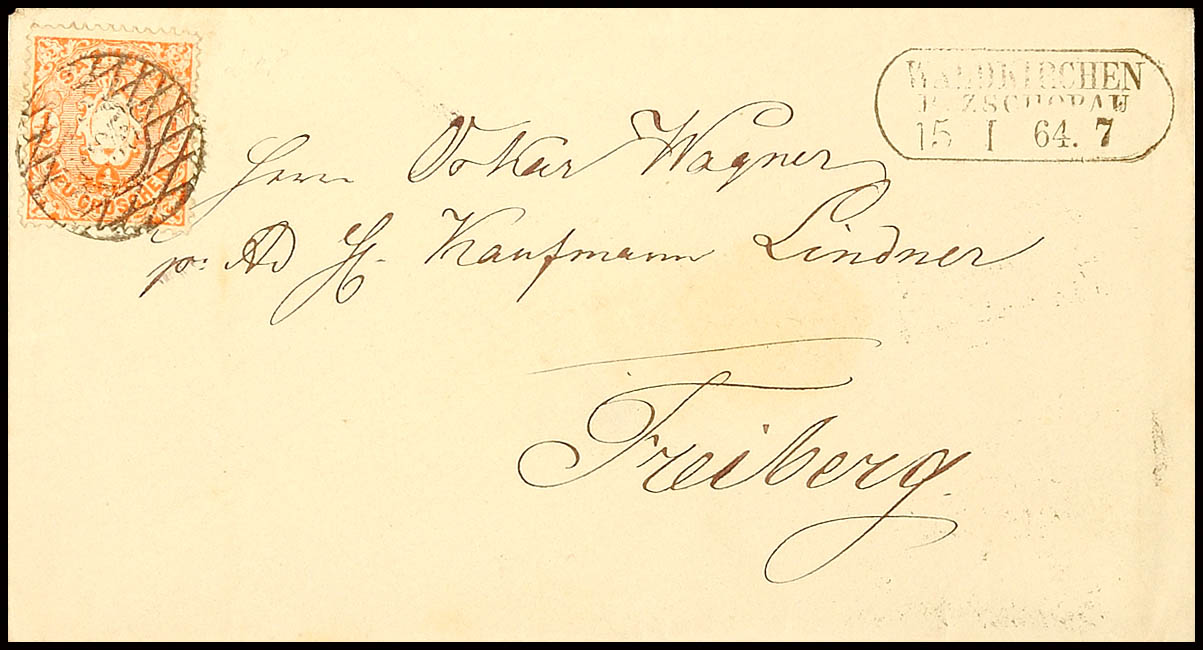 WALDKIRCHEN
B. ZSCHOPAU
15 I 64. 7
NEUGROSCHEN
Herrn Oskar Wagner
pr: Ad H. Kaufmann Lindner
Freiberg